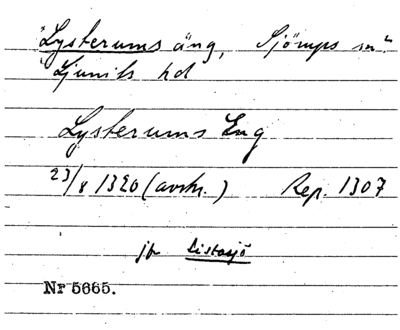 "Lysterums äng, Sjömps sn"
Ljunits hd
Lysterums Eng
23/8 1320 (avskr.) Rep. 1307
jfr Listasjö
Nr 5665.